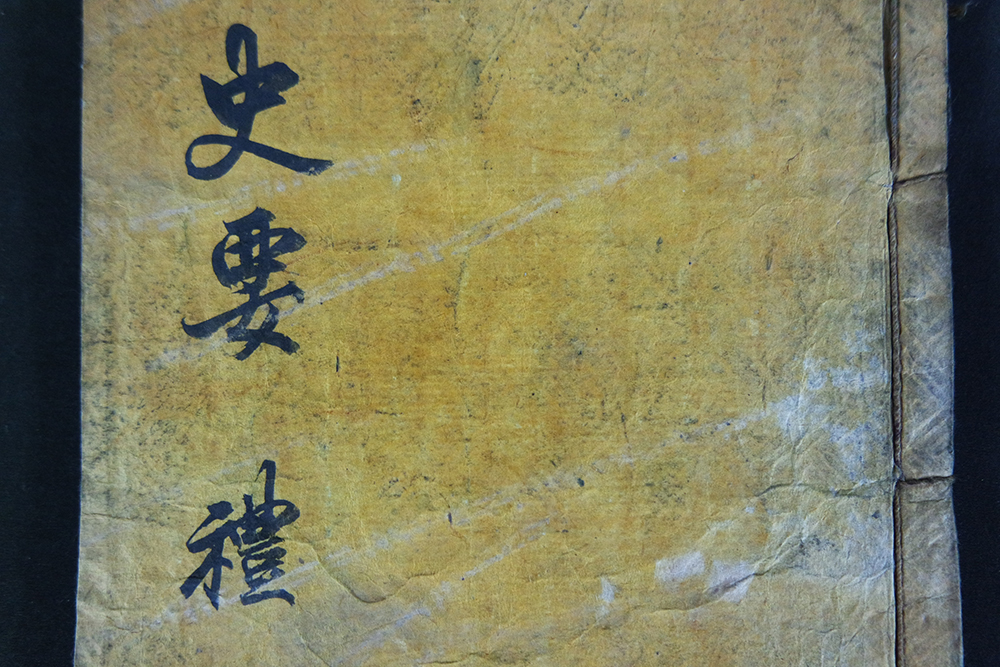 史要 禮